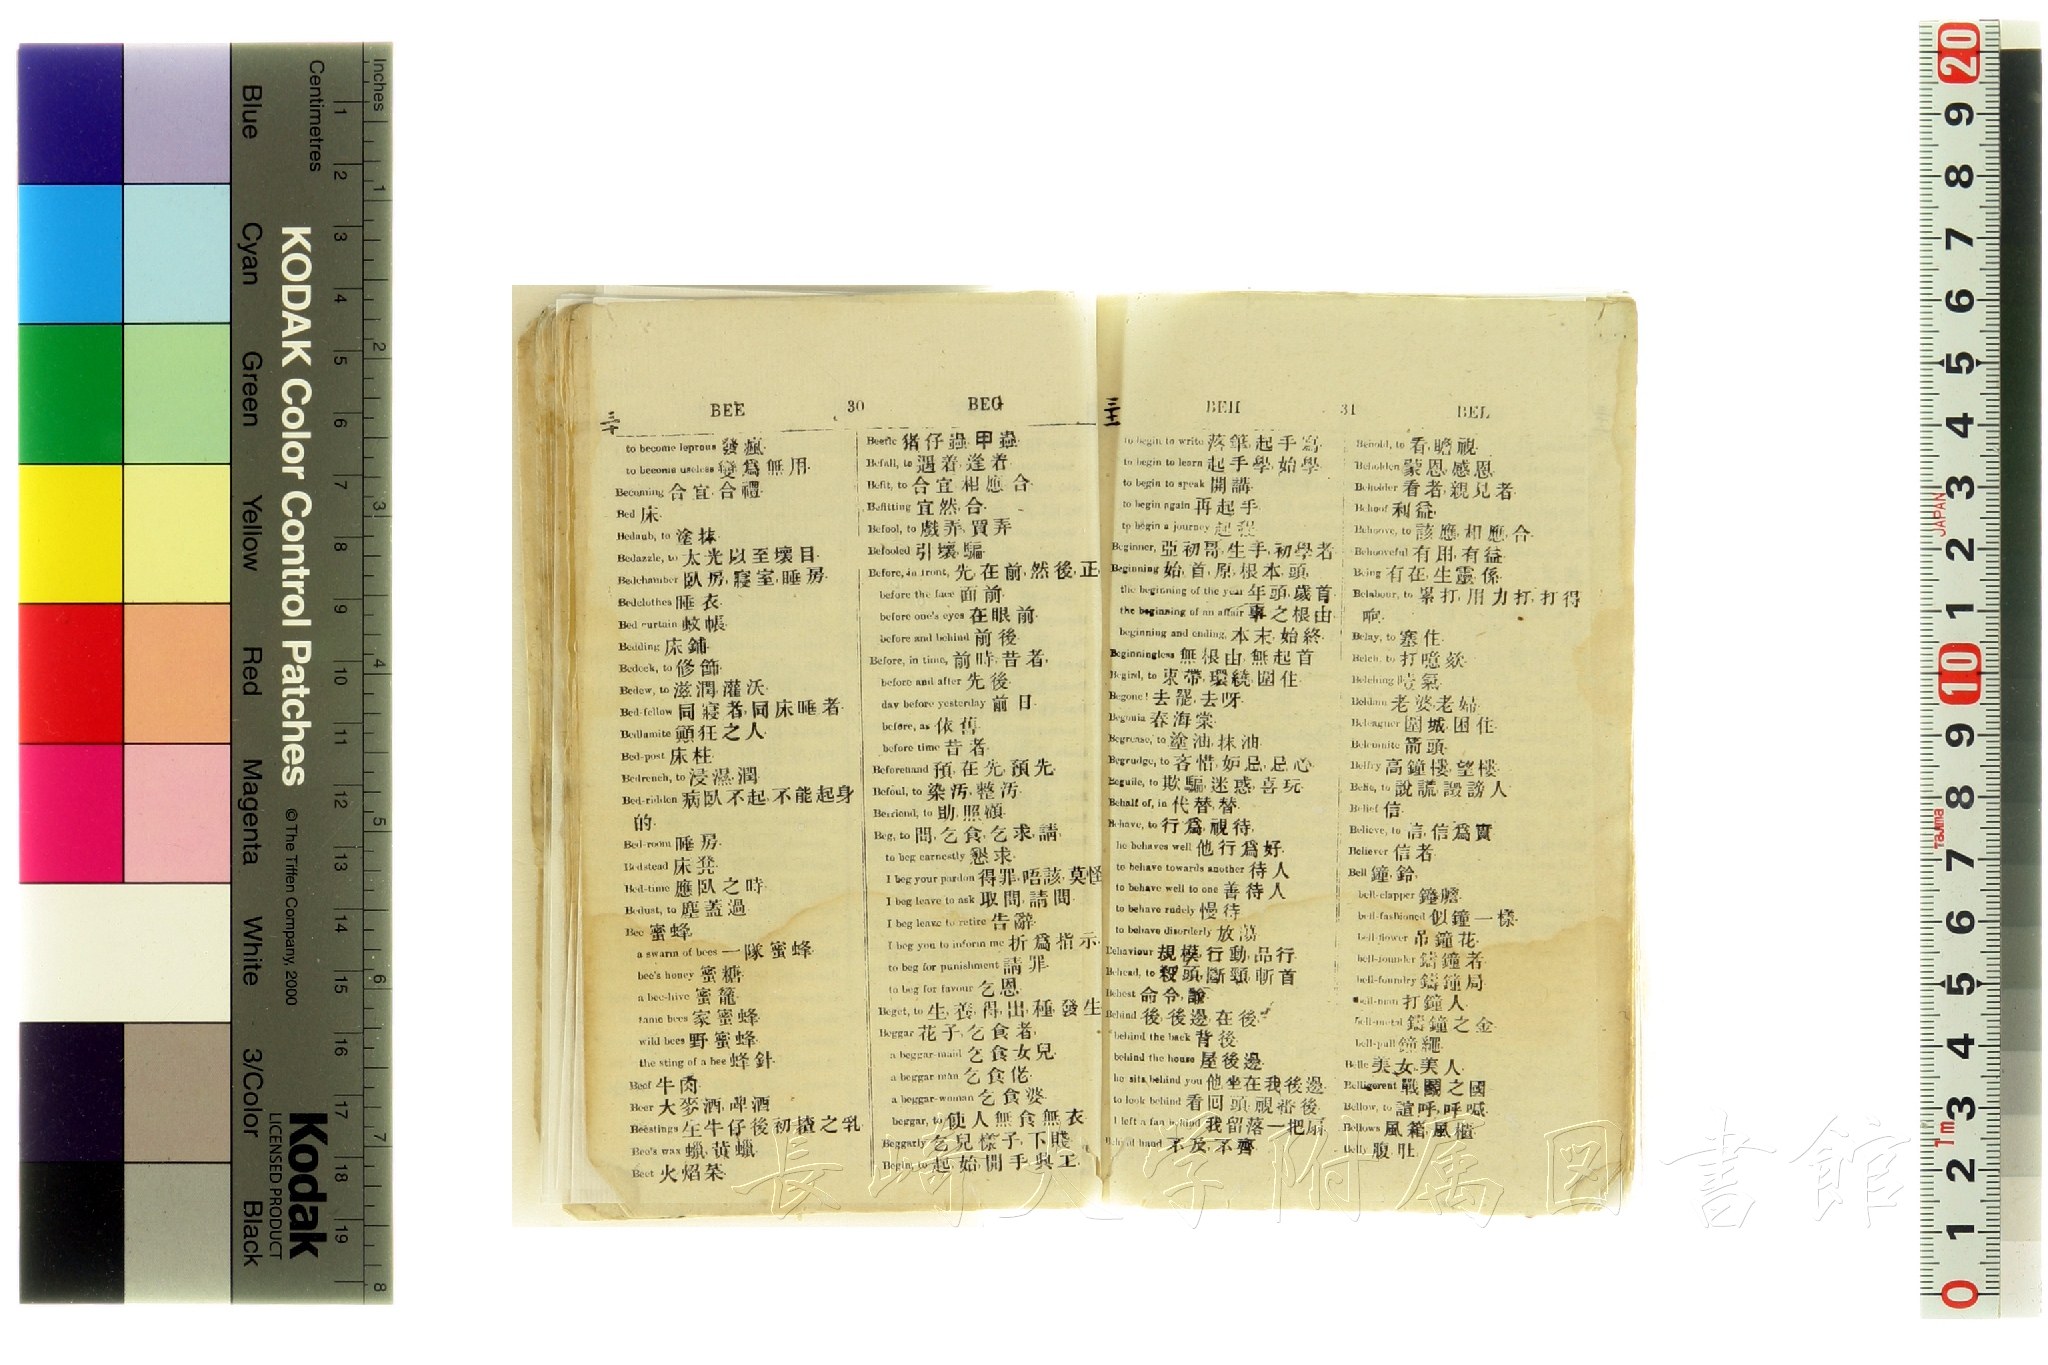 BEE 30 BEG
三十
to become leprous 發瘋.
to become useless 變爲無用.
Becoming 合宜, 合禮.
Bed 床.
Bedaub, to 塗抹.
Bedazzle, to 太光以至壞目.
Bedchamber 臥房, 寢室, 睡房.
Bedclothes 睡衣.
Bed curtain 蚊帳.
Bedding 床鋪.
Bedeck, to 修飾.
Bedew, to 滋潤, 灌沃.
Bed-fellow 同寢者, 同床睡者.
Bedlamite 顚狂之人.
Bed-post 床柱.
Bedrench, to 浸濕, 潤.
Bed-ridden 病臥不起, 不能起身
的.
Bed-room 睡房.
Bedstead 床凳.
Bed-time 應臥之時.
Bedust, to 塵蓋過.
Bee 蜜蜂.
a swarm of bees 一隊蜜蜂.
bee's honey 蜜糖.
a bee-hive 蜜籠.
tame bees 家蜜蜂.
wild bees 野蜜蜂.
the sting of a bee 蜂針.
Beef 牛肉.
Beer 大麥酒, 啤酒.
Beestings 生牛仔後初揸之乳.
Bee's wax 蠟, 黃蠟.
Beet 火焰菜.
Beetle 猪仔蟲, 甲蟲.
Befall, to 遇着, 逢着.
Befit, to 合宜, 相應, 合.
Befitting 宜然, 合.
Befool, to 戲弄, 買弄.
Befooled 引壞, 騙.
Before, in front, 先, 在前, 然後, 正.
before the face 面前.
before one's eyes 在眼前.
before and behind 前後.
Before, in time, 前時, 昔者.
before and after 先後.
day before yesterday 前日.
before, as 依舊.
before time 昔者.
Beforehand 預, 在先, 預先.
Befoul, to 染汚, 整汚.
Befriend, to 助, 照顧.
Beg, to 問, 乞食, 乞求, 請.
to beg earnestly 懇求.
I beg your pardon 得罪, 唔該, 莫怪
I beg leave to ask 取問, 請問.
I beg leave to retire 告辭.
I beg you to inform me 祈爲指示.
to beg for punishment 請罪.
to beg for favour 乞恩.
Beget, to 生, 養, 得, 出種, 發生
Beggar 花子, 乞食者.
a beggar-maid 乞食女兒.
a beggar-man 乞食佬.
a beggar-woman 乞食婆.
beggar, to 使人無食無衣
Beggarly 乞兒樣子, 下賤.
Begin, to 起, 始, 開手, 興工.
BEH 31 BEL
三十一
to begin to write 落筆, 起手寫.
to begin to learn 起手學, 始學.
to begin to speak 開講.
to begin again 再起手.
to begin a journey 起程.
Beginner, 亞初哥, 生手, 初學者
Beginning 始, 首, 原, 根本, 頭.
the beginning of the year 年頭, 歲首
the beginning of an affair 事之根由
beginning and ending, 本末, 始終.
Beginningless 無根由, 無起首
Begird, to 束帶, 環繞, 圍住.
Begone! 去罷, 去呀.
Begonia 春海棠.
Begrease, to 塗油, 抹油.
Begrudge, to 吝惜, 妬忌, 忌心.
Beguile, to 欺騙, 迷惑, 喜玩.
Behalf of, in 代替, 替.
Behave, to 行爲, 視待.
he behaves well 他行爲好.
to behave towards another 待人
to behave well to one 善待人
to behave rudely 慢待
to behave disorderly 放蕩.
Behaviour 規模, 行動, 品行.
Behead, to 殺頭, 斷頸, 斬首
Behest 命令, 諭
Behind 後, 後邊, 在後.
behind the back 背後.
behind the house 屋後邊.
he sits behind you 他坐在我後邊.
to look behind 看回頭, 視背後.
I left a fan behind 我留落一把扇.
Behind hand 不及, 不齊.
Behold, to 看, 瞻視.
Beholden 蒙恩, 感恩.
Beholder 看者, 親見者.
Behoof 利益.
Behoove, to 該應, 相應, 合.
Behooveful 有用, 有益.
Being 有在, 生靈, 係.
Belabour, to 累打, 用力打, 打得
响.
Belay, to 塞住.
Belch, to 打噫欬.
Beldam 老婆, 老婦.
Beleaguer 圍城, 困住.
Belemnite 箭頭.
Belfry 高鐘樓, 望樓.
Belie, to 說謊, 譭謗人
Belief 信.
Believe, to 信, 信爲實
Believer 信者.
Bell 鐘, 鈴.
bell-clapper 鐘膽.
bell-fashioned 似鐘一樣.
bell-flower 吊鐘花.
bell-founder 鑄鐘者.
bell-foundry 鑄鐘局.
bell-man 打鐘人.
bell-metal 鑄鐘之金.
bell-pull 鐘繩.
Belle 美女, 美人.
Belligerent 戰鬭之國
Bellow, to 諠呼, 呼喊.
Bellows 風箱, 風櫃.
Belly 腹, 肚.
長崎大学附属図書館
KODAK Color Control Patches
© The Tiffen Company, 2000
Kodak
LICENSED PRODUCT
Inches 1 2 3 4 5 6 7 8
Centimetres 1 2 3 4 5 6 7 8 9 10 11 12 13 14 15 16 17 18 19
Blue Cyan Green Yellow Red Magenta White 3/Color Black
20 9 8 7 6 5 4 3 2 1 10 9 8 7 6 5 4 3 2 1 0
JAPAN
Tajima
1m